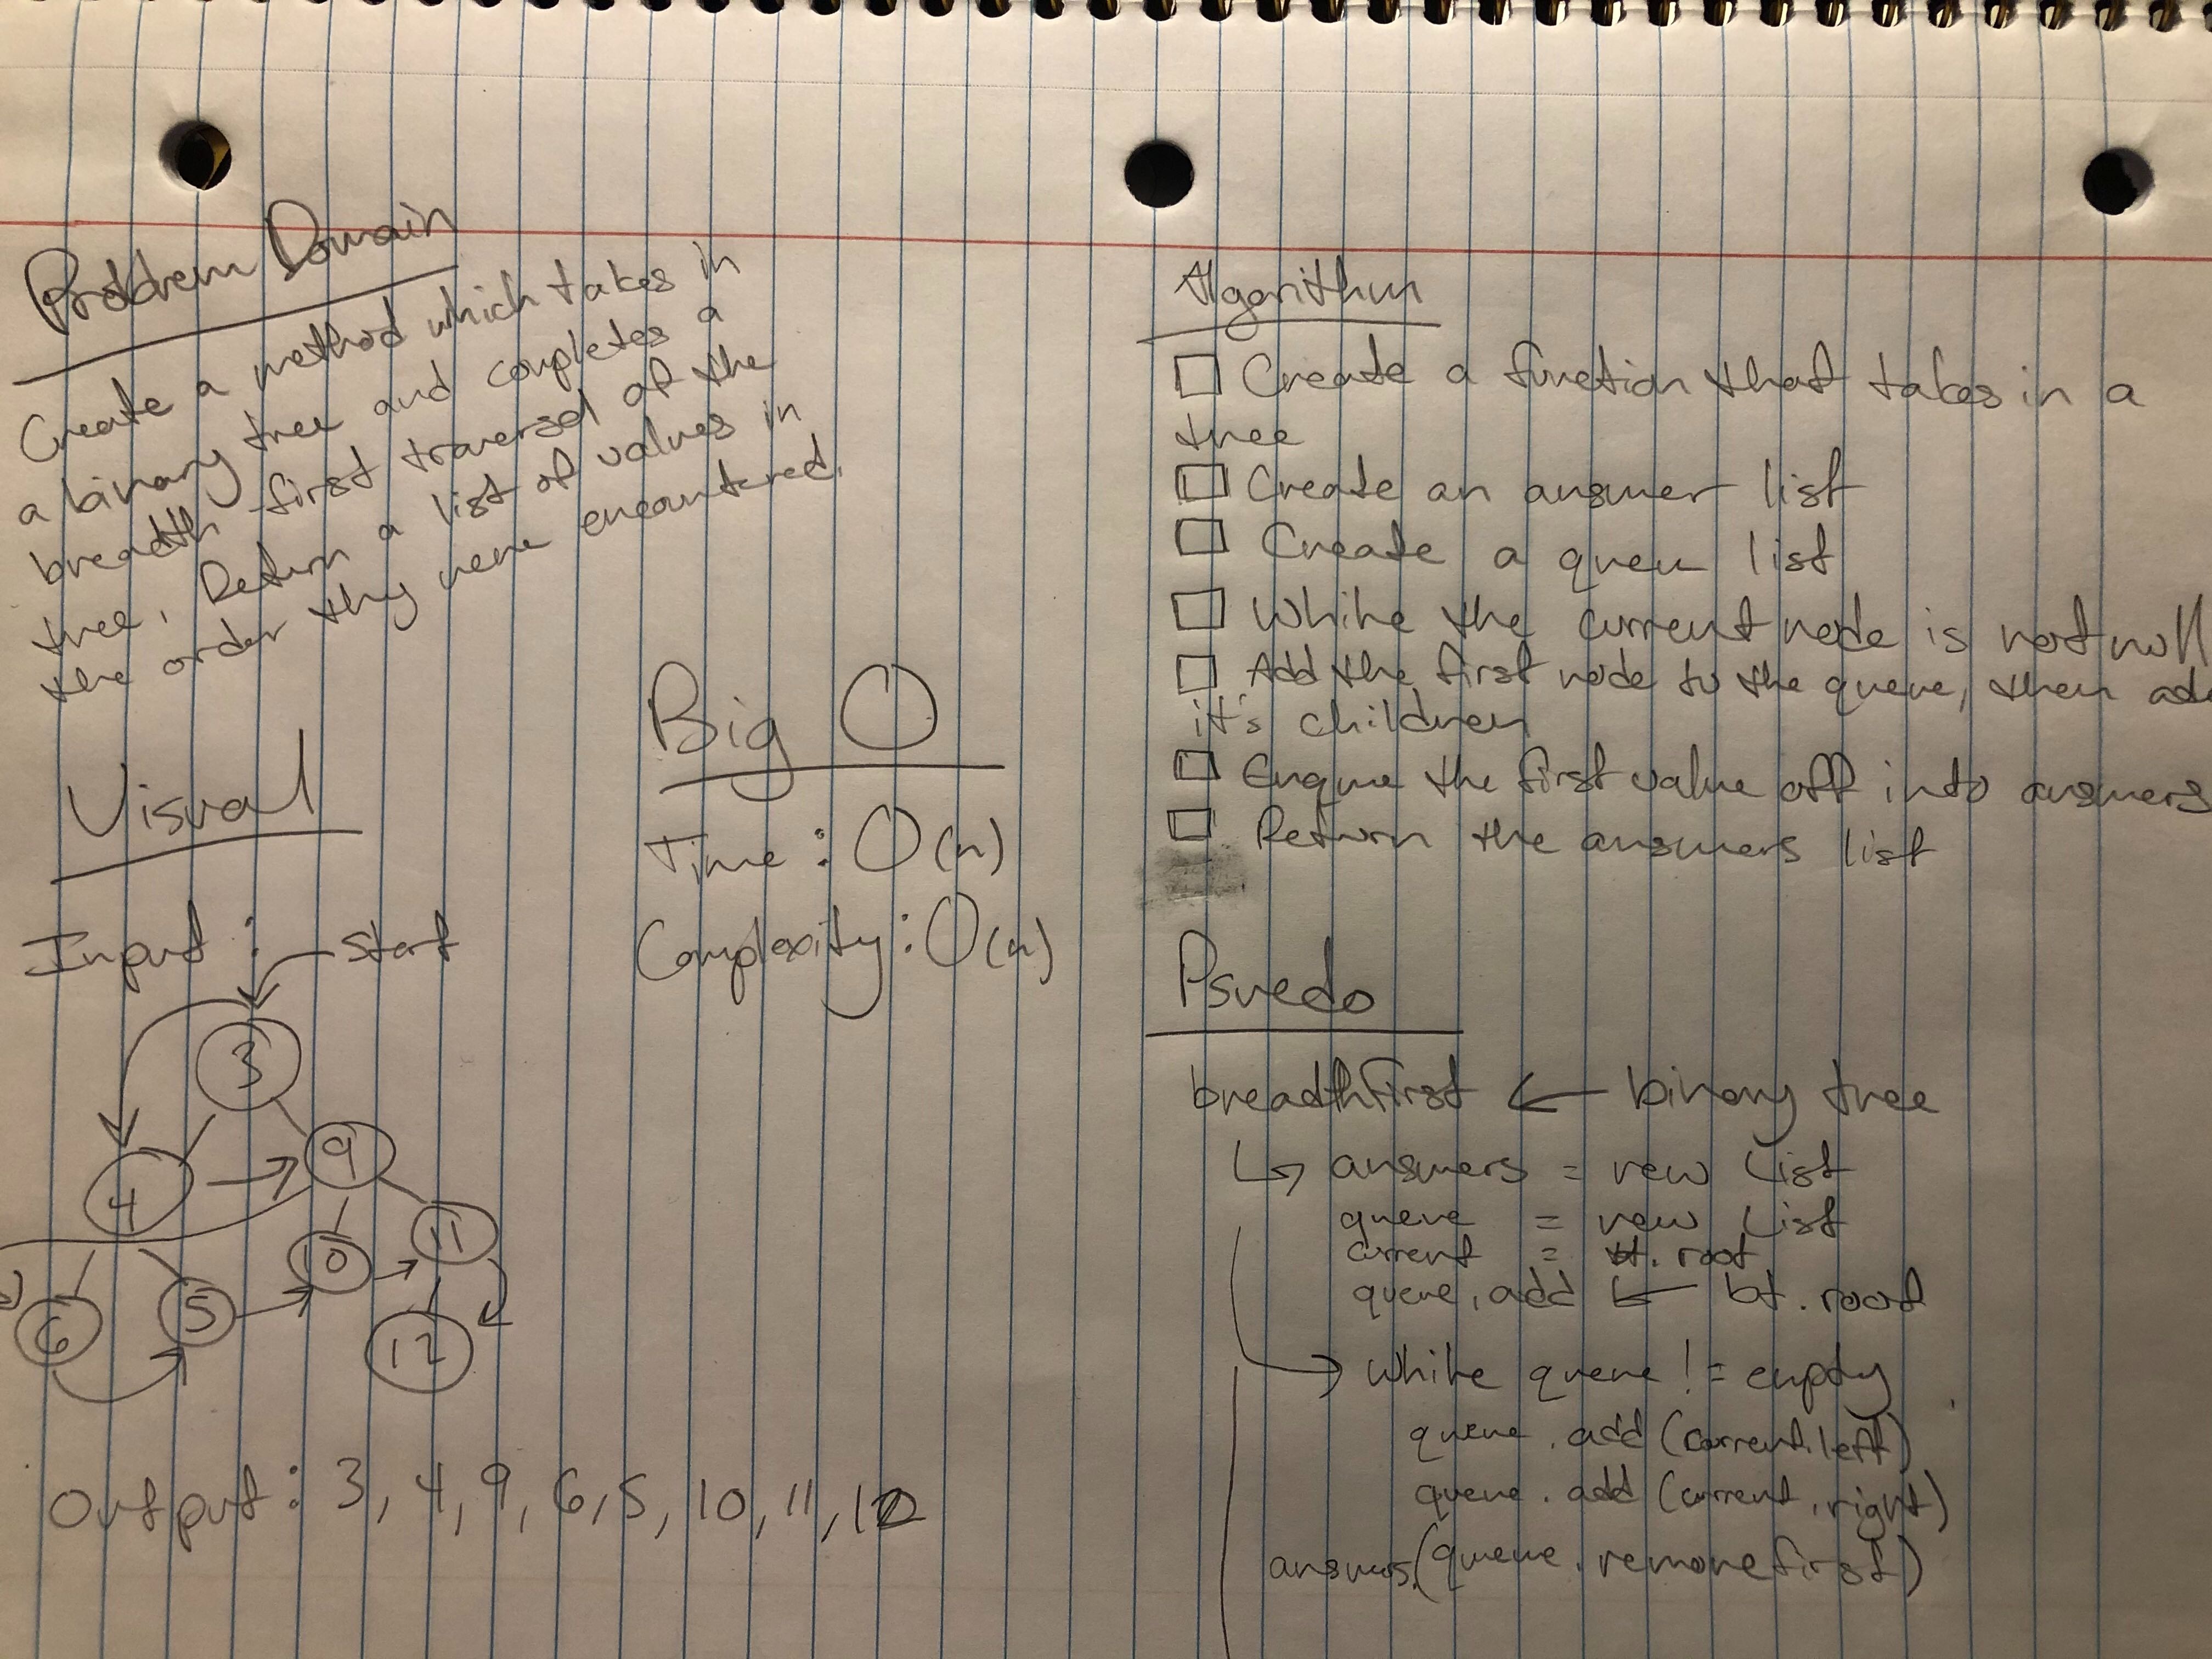 Problem Domain
Create a method which takes in
a binary tree and completes a
breadth first traversal of the
tree. Return a list of values in
the order they were encountered.
Visual
Input: start
3
4
9
6
5
10
11
12
Output: 3, 4, 9, 6, 5, 10, 11, 12
Big O
Time: O(n)
Complexity: O(n)
Algorithm
Create a function that takes in a
tree
Create an answer list
Create a queu list
While the current node is not null
Add the first node to the queue, then add
it's children
Enque the first value off into answers
Return the answers list
Psuedo
breadthFirst ← binary tree
↳ answers = new List
queue = new List
current = bt.root
queue.add ← bt.root
→ while queue != empty
queue.add(current.left)
queue.add(current.right)
answers.(queue.removefirst)